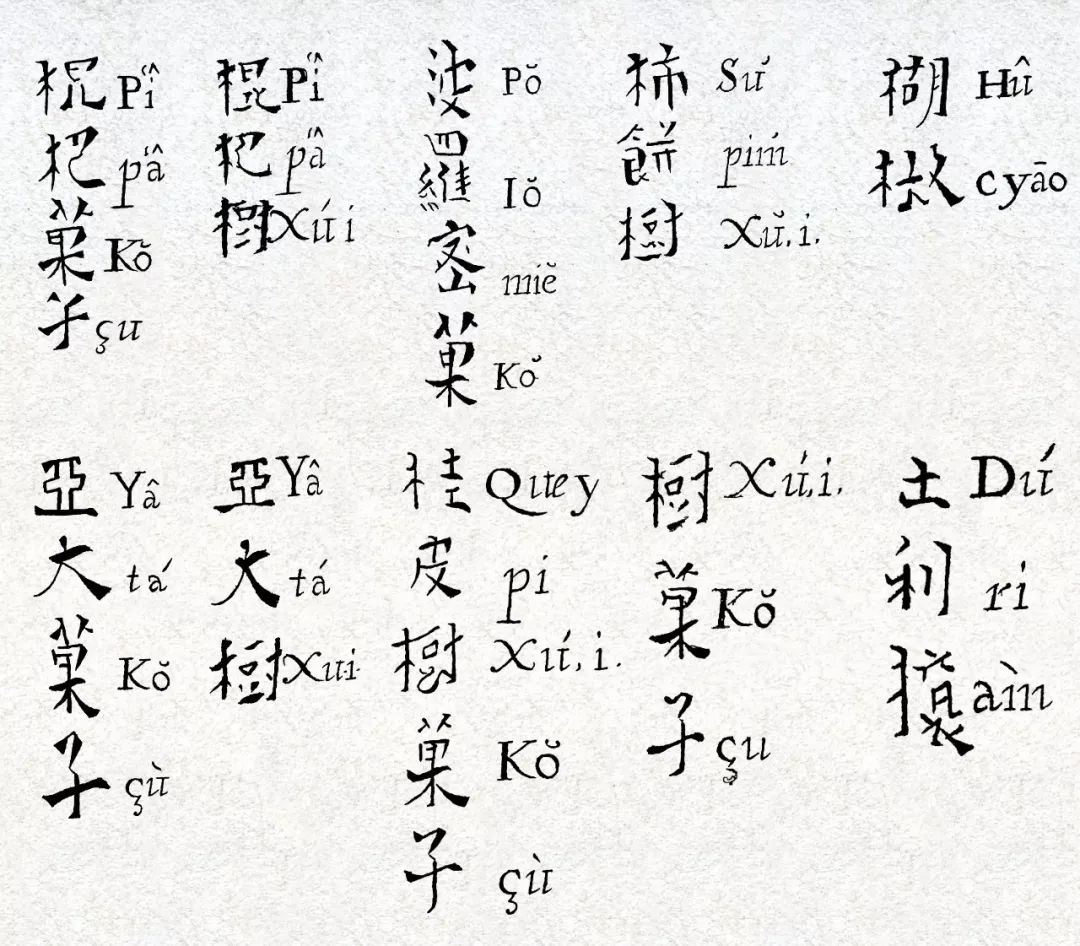 Pî
杷 pâ
菓 Kŏ
子 çu
棍 Pî
杷 pâ
樹 Xúi
波 Pŏ
羅 Iŏ
密 miĕ
菓 Kŏ
柿 Sú
餅 pim
樹 Xŭ.i.
楜 Hû
椒 cyāo
亞 Yâ
大 tá
菓 Kŏ
子 çù
亞 Yâ
大 tá
樹 Xui
桂 Quey
皮 pi
樹 Xú.i.
菓 Kŏ
子 çù
樹 Xú.i.
菓 Kŏ
子 çu
土 Dú
利 ri
aìm